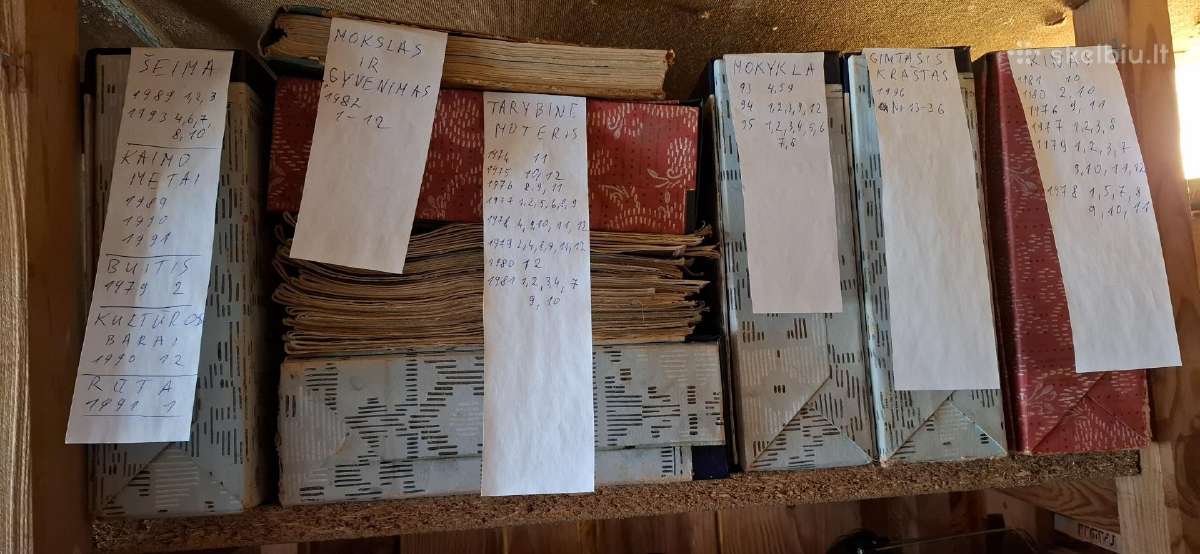 ŠEIMA
1989 1,2,3
1993 4,6,7,
8,10
KAIMO
METAI
1989
1990
1991
BUITIS
1979 2
KULTŪROS
BARAI
1990 12
RŪTA
1991 1
MOKSLAS
IR
GYVENIMAS
1982
1-12
TARYBINĖ
MOTERIS
1974 11
1975 10,12
1976 8,9,11
1978 4,9,10,11,12
1979 2,4,8,9,11,12
1980 12
1981 1,2,3,4,7
9,10
MOKYKLA
93 4,5,9
94 1,2,3,9,12
95 1,2,3,4,5,6
7,8
GIMTASIS
KRAŠTAS
1996
Nr 13-36
skelbiu.lt
1981 10
1980 2,10
1976 9,11
1977 1,2,3,8
1979 1,2,3,7
9,10,11,12
1978 1,5,7,8
9,10,11